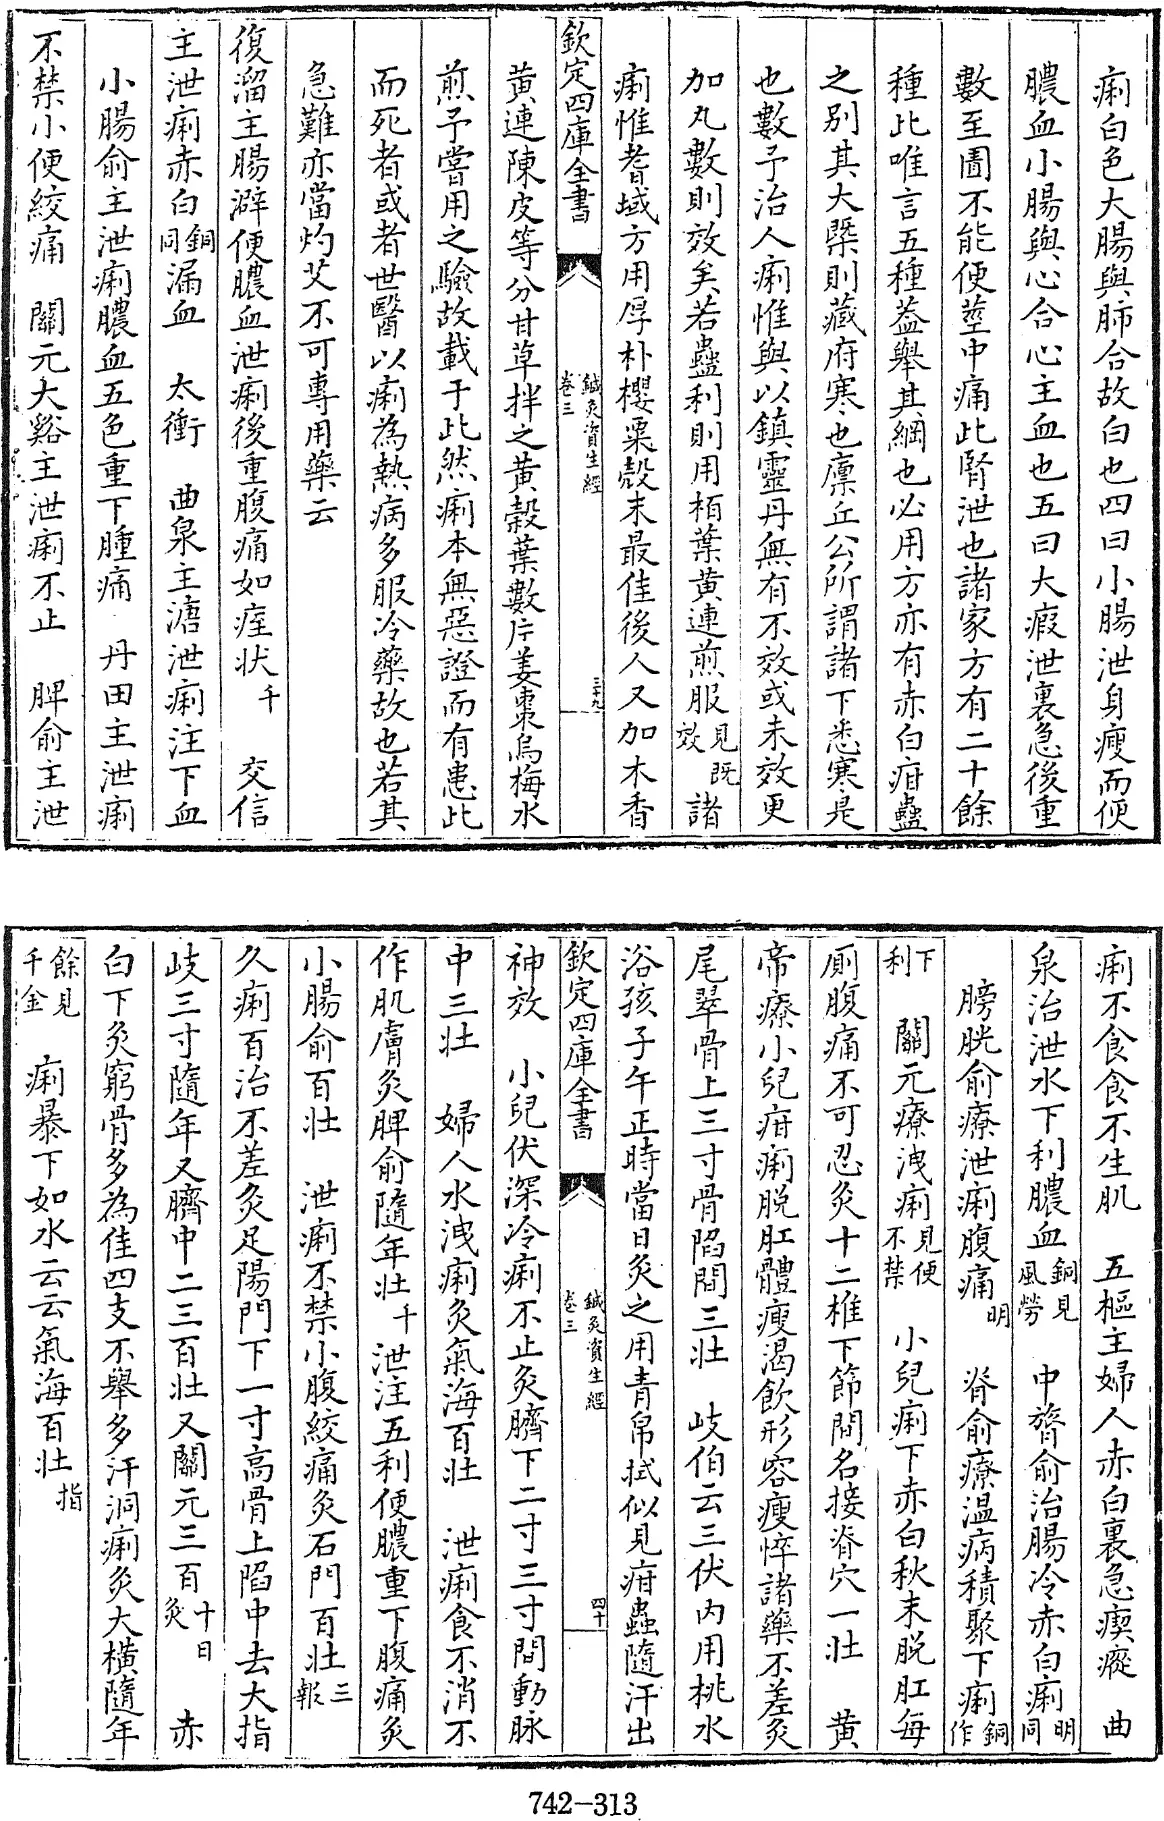 痢白色大腸與肺合故白也四曰小腸泄身瘦而便
膿血小腸與心合心主血也五曰大瘕泄裏急後重
數至圊不能便莖中痛此腎泄也諸家方有二十餘
種此唯言五種蓋舉其綱也必用方亦有赤白疳蠱
之別其大槩則藏府寒也廪丘公所謂諸下悉寒是
也數予治人痢惟與以鎮靈丹無有不效或未效更
加丸數則效矣若蠱利則用栢葉黄連煎服見既效諸
痢惟耆域方用厚朴櫻粟殻末最佳後人又加木香
欽定四庫全書 鍼灸資生經卷三 三十九
黄連陳皮等分甘草拌之黄榖葉數片姜棗烏梅水
煎予嘗用之驗故載于此然痢本無惡證而有患此
而死者或者世醫以痢為熱病多服冷藥故也若其
急難亦當灼艾不可專用藥云
復溜主腸澼便膿血泄痢後重腹痛如痓狀千 交信
主泄痢赤白銅同漏血 太衝 曲泉主溏泄痢注下血
小腸俞主泄痢膿血五色重下腫痛 丹田主泄痢
不禁小便絞痛 關元大谿主泄痢不止 脾俞主泄
痢不食食不生肌 五樞主婦人赤白裏急瘈瘲 曲
泉治泄水下利膿血銅見風勞 中膂俞治腸冷赤白痢明同
膀胱俞療泄痢腹痛明 脊俞療温病積聚下痢銅作
下利 關元療洩痢見便不禁 小兒痢下赤白秋末脱肛每
厠腹痛不可忍灸十二椎下節間名接脊穴一壯 黄
帝療小兒疳痢脱肛體瘦渴飲形容瘦悴諸藥不差灸
尾翠骨上三寸骨陷間三壯 岐伯云三伏内用桃水
浴孩子午正時當日灸之用青帛拭似見疳蟲隨汗出
欽定四庫全書 鍼灸資生經卷三 四十
神效 小兒伏深冷痢不止灸臍下二寸三寸間動脉
中三壯 婦人水洩痢灸氣海百壯 泄痢食不消不
作肌膚灸脾俞隨年壯千 泄注五利便膿重下腹痛灸
小腸俞百壯 泄痢不禁小腹絞痛灸石門百壯三報
久痢百治不差灸足陽門下一寸高骨上陷中去大指
岐三寸隨年又臍中二三百壯又關元三百十日灸 赤
白下灸窮骨多為佳四支不舉多汗洞痢灸大横隨年
餘見千金 痢暴下如水云云氣海百壯指
742-313